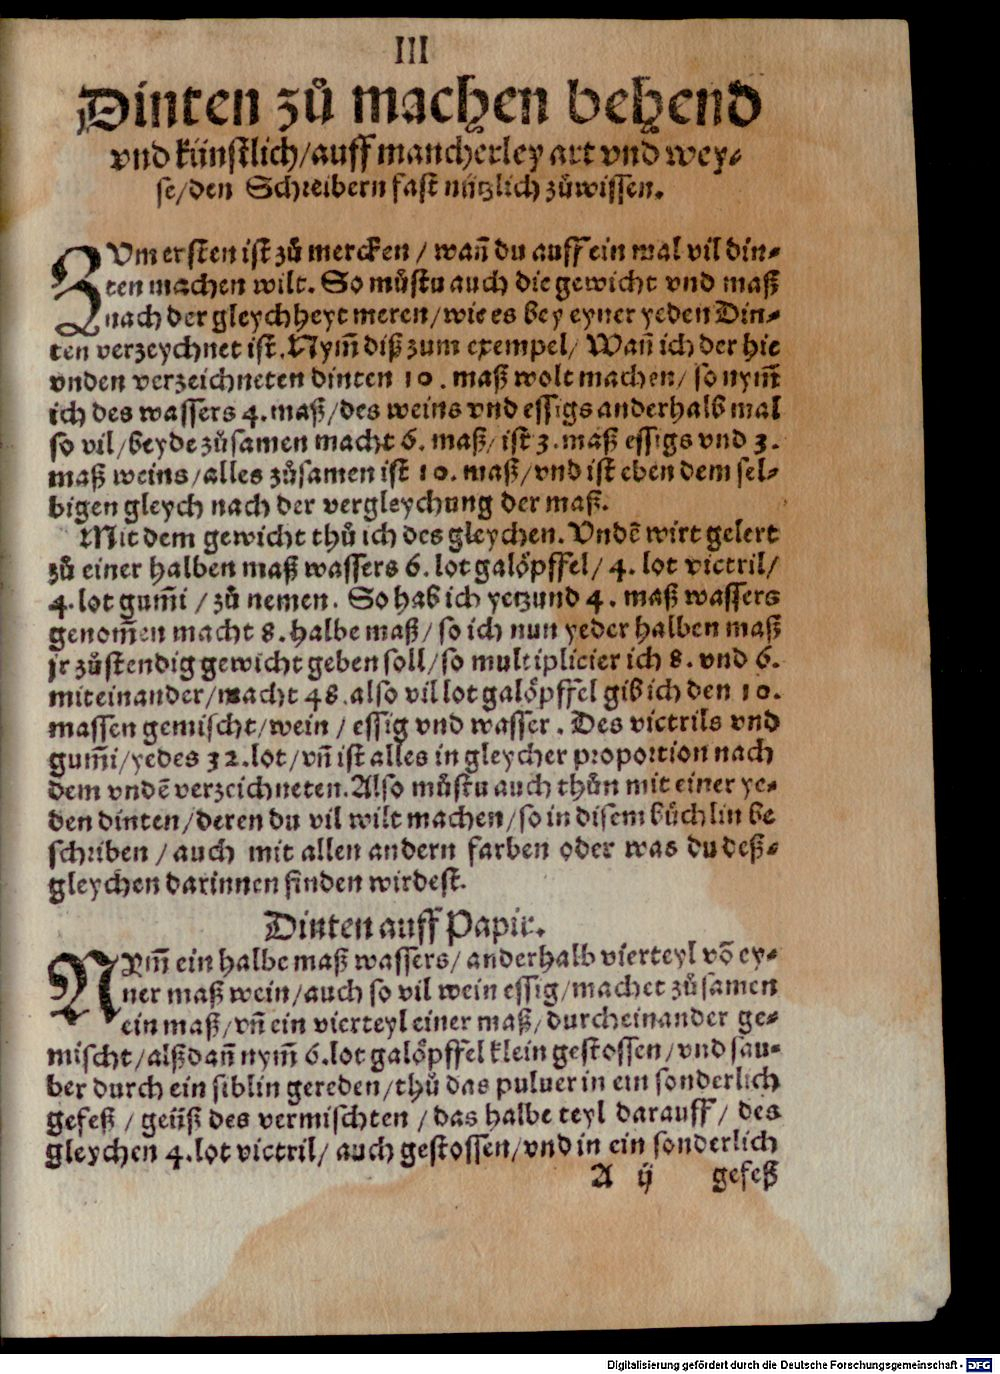 III
Dinten zů machen behend
vnd künstlich/auff mancherley art vnd wey-
se/den Schreibern fast nützlich zůwissen.
ZVm ersten ist zů mercken / wañ du auff ein mal vil din-
ten machen wilt. So můstu auch die gewicht vnd maß
nach der gleychheyt meren/wie es bey eyner yeden Din-
ten verzeychnet ist. Nym̃ diß zum exempel/ Wañ ich der hie
vnden verzeichneten dinten 10. maß wolt machen/ so nym̃
ich des wassers 4. maß/des weins vnd essigs anderhalb mal
so vil/beyde zůsamen macht 6. maß/ ist 3. maß essigs vnd 3.
maß weins/alles zůsamen ist 10. maß/vnd ist eben dem sel-
bigen gleych nach der vergleychung der maß.
Mit dem gewicht thů ich des gleychen. Vndẽ wirt gelert
zů einer halben maß wassers 6. lot galöpffel/ 4. lot victril/
4. lot gum̃i / zů nemen. So hab ich yetzund 4. maß wassers
genom̃en macht 8. halbe maß/ so ich nun yeder halben maß
jr zůstendig gewicht geben soll/so multiplicier ich 8. vnd 6.
miteinander/macht 48. also vil lot galöpffel gib ich den 10.
massen gemischt/wein / essig vnd wasser. Des victrils vnd
gum̃i/yedes 32. lot/vñ ist alles in gleycher proportion nach
dem vndẽ verzeichneten. Also můstu auch thůn mit einer ye-
den dinten/deren du vil wilt machen/so in disem bůchlin be
schriben / auch mit allen andern farben oder was du deß-
gleychen darinnen finden wirdest.
Dinten auff Papir.
NYm̃ ein halbe maß wassers/ anderhalb vierteyl võ ey-
ner maß wein/auch so vil wein essig/machet zůsamen
ein maß/vñ ein vierteyl einer maß/durcheinander ge-
mischt/alßdañ nym̃ 6. lot galöpffel klein gestossen/vnd sau-
ber durch ein siblin gereden/thů das puluer in ein sonderlich
gefeß / geüß des vermischten / das halbe teyl darauff/ des
gleychen 4. lot victril/ auch gestossen/vnd in ein sonderlich
A ij gefeß
Digitalisierung gefördert durch die Deutsche Forschungsgemeinschaft - DFG